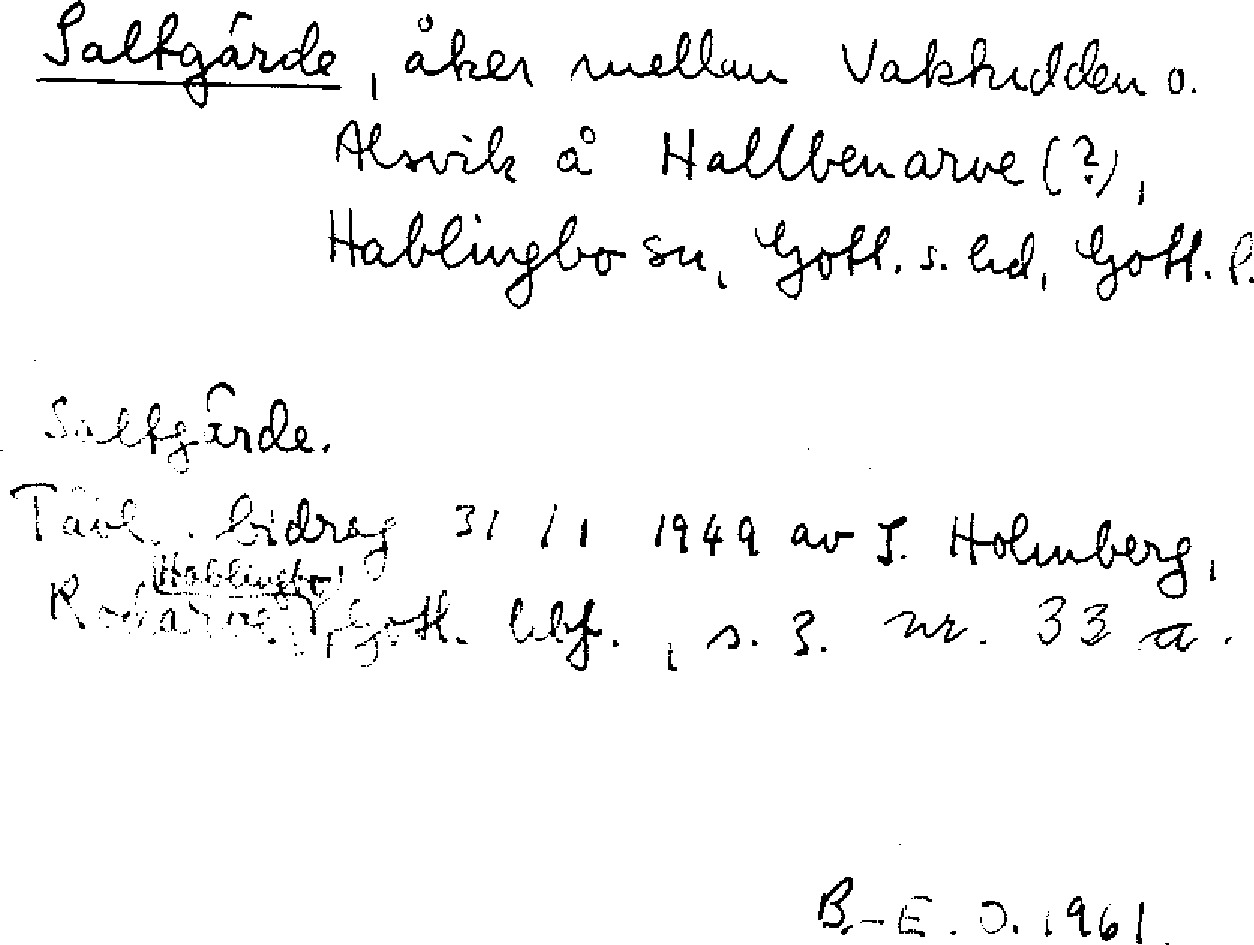 Saltgärde, åker mellan Vaktudden o.
Alsvik å Hallbenarve (?),
Hablingbo sn, Gotl. s. hd, Gotl. l.
Saltgärde.
Tävl. bidrag 31/1 1949 av S. Holmberg,
Hablingbo
Rovarve, Gotl. hbf., s. 3. nr. 33 a.
B.-E. O. 1961.